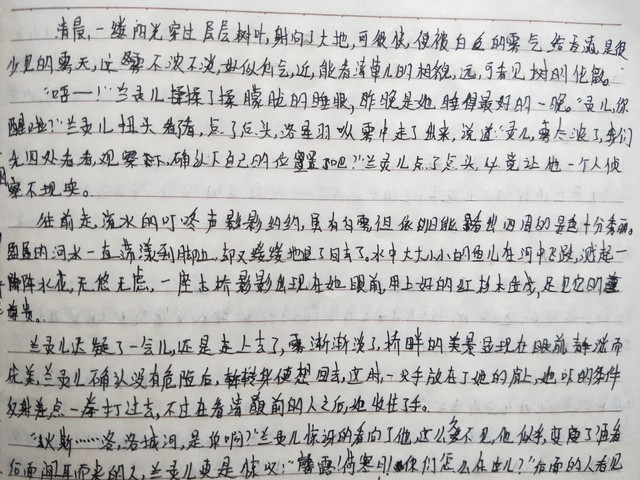 清晨,一缕阳光穿过层层树叶,射向了大地,可很快,便被白色的雾气给吞没,是很
少见的雾天,这雾不浓不淡,好似仙气,近,能看清草儿的相貌,远,可看见树的化
"呼—!"兰灵儿揉了揉朦胧的睡眼,昨晚是她睡得最好的一晚。"灵儿,你
醒啦?"兰灵儿扭头看猪,点了点头,洛星羽从雾中走了出来,说道:"灵儿,雾太浓了,我们
先四处看看,观察下,确认下自己的位置吧?"兰灵儿点了点头,毕竟让他一个人侦
察不现实。
往前走,流水的叮咚声影影约约,虽有白雾,但依旧能看出四周的景色十分秀丽。
内河水一直荡漾到脚边,却又缓缓地退了回去了。水中大大小小的鱼儿在河中飞跃,溅起一
阵阵水花,无忧无虑。一座木桥影影出现在她眼前,用上好的红杉木造成,足见它的
尊贵。
兰灵儿迟疑了一会儿,还是走上去了,雾渐渐淡了,桥畔的美景显现在眼前,静谧而
优美,兰灵儿确认没有危险后,转身便想回去,这时,一只手放在了她的肩上,她以的条件
反射差点一拳打过去,不过在看清眼前的人之后,她收住了手。
"狄斯……洛,洛城河,是你啊?"兰灵儿惊讶的看向了他,这么多不见,他似乎变瘦了,随着
后面闻耳而来的人,兰灵儿更是惊叹:"露!荷寒月!你们怎么在这儿?"后面的人看见